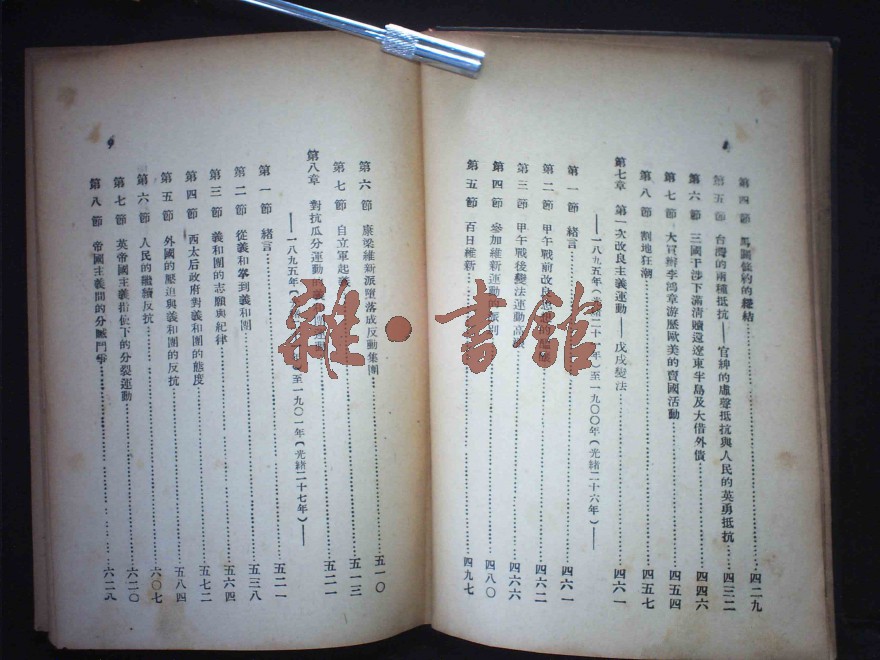 第四節　馬關條約的締結………四二九
第五節　台灣的兩種抵抗——官紳的虛聲抵抗與人民的英勇抵抗……四三二
第六節　三國干涉下滿清贖還遼東半島及大借外債………四四六
第七節　大官僚李鴻章游歷歐美的賣國活動………四五四
第八節　割地狂潮………四五七
第七章　第一次改良主義運動——戊戌變法………四六一
——一八九五年(光緒二十一年)至一九〇〇年(光緒二十六年)——
第一節　緒言………四六一
第二節　甲午戰前改良………四六二
第三節　甲午戰後變法運動高………四六六
第四節　參加維新運動的派別………四八〇
第五節　百日維新………四九七
8
第六節　康梁維新派墮落成反動集團………五一〇
第七節　自立軍起義………五一三
第八章　對抗瓜分運動的………五二一
——一八九五年(光緒二十一年)至一九〇一年(光緒二十七年)——
第一節　緒言………五二一
第二節　從義和拳到義和團………五三八
第三節　義和團的志願與紀律………五六四
第四節　西太后政府對義和團的態度………五七二
第五節　外國的壓迫與義和團的反抗………五八四
第六節　人民的繼續反抗………六〇七
第七節　英帝國主義指使下的分裂運動………六二〇
第八節　帝國主義間的分贓鬥爭………六二八
9
雜·書館